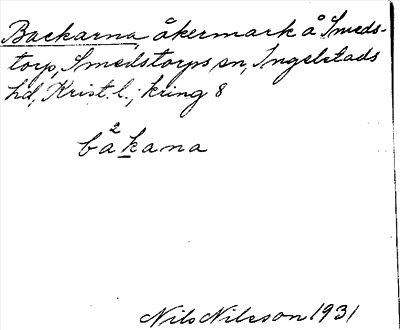 Backarna, åkermark å Smeds-
torp, Smedstorps sn, Ingelstads
hd, Krist. l.; kring 8
bå²kana
Nils Nilsson 1931